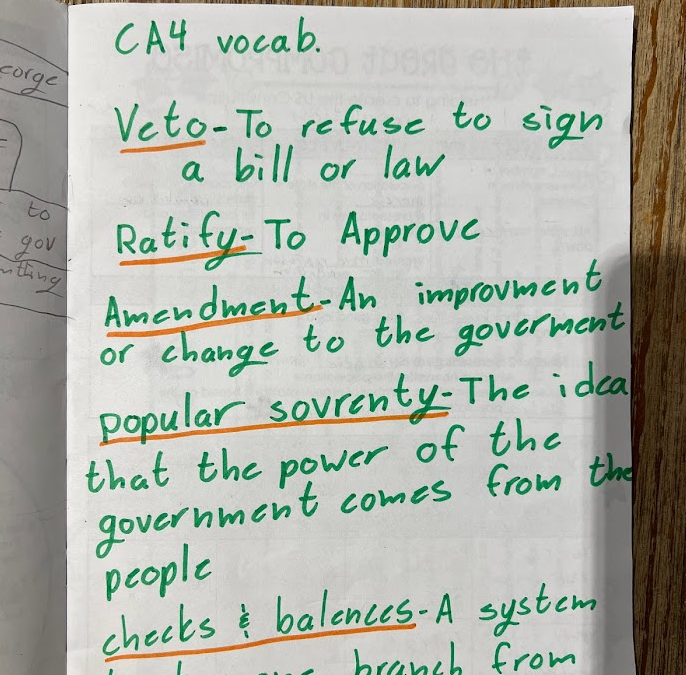 CA4 vocab.
Veto-To refuse to sign
a bill or law
Ratify-To Approve
Amendment-An improvment
or change to the goverment
popular sovrenty-The idea
that the power of the
government comes from the
people
checks & balences-A system
branch from
eorge
to
gov